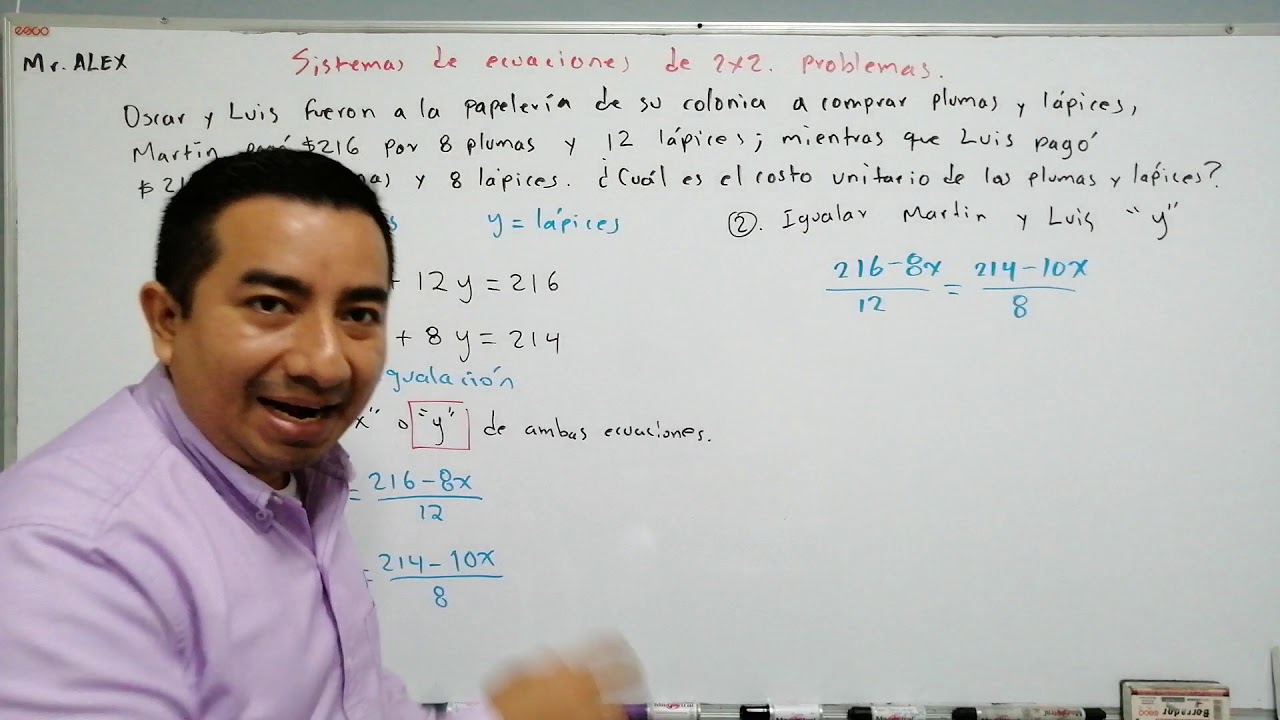 Mr. ALEX
Sistemas de ecuaciones de 2x2. problemas.
Oscar y Luis fueron a la papelería de su colonia a comprar plumas y lápices,
Martín $216 por 8 plumas y 12 lápices; mientras que Luis pagó
$ y 8 lápices. ¿Cuál es el costo unitario de las plumas y lapices?
y = lápices
12y = 216
+ 8y = 214
"y" de ambas ecuaciones.
= 216 - 8x / 12
= 214 - 10x / 8
②. Igualar Martin y Luis "y"
216 - 8x / 12 = 214 - 10x / 8
Borrador